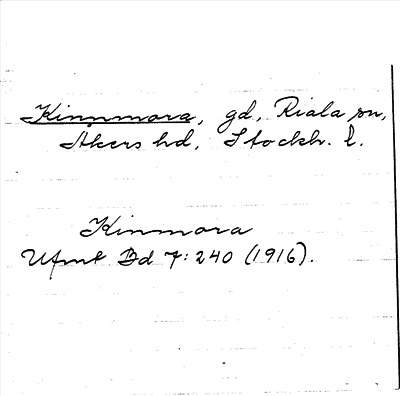 Kinnmora, gd, Riala sn,
Åkers hd, Stockh. l.
Kinmora
Ufmt Bd 7:240 (1916).